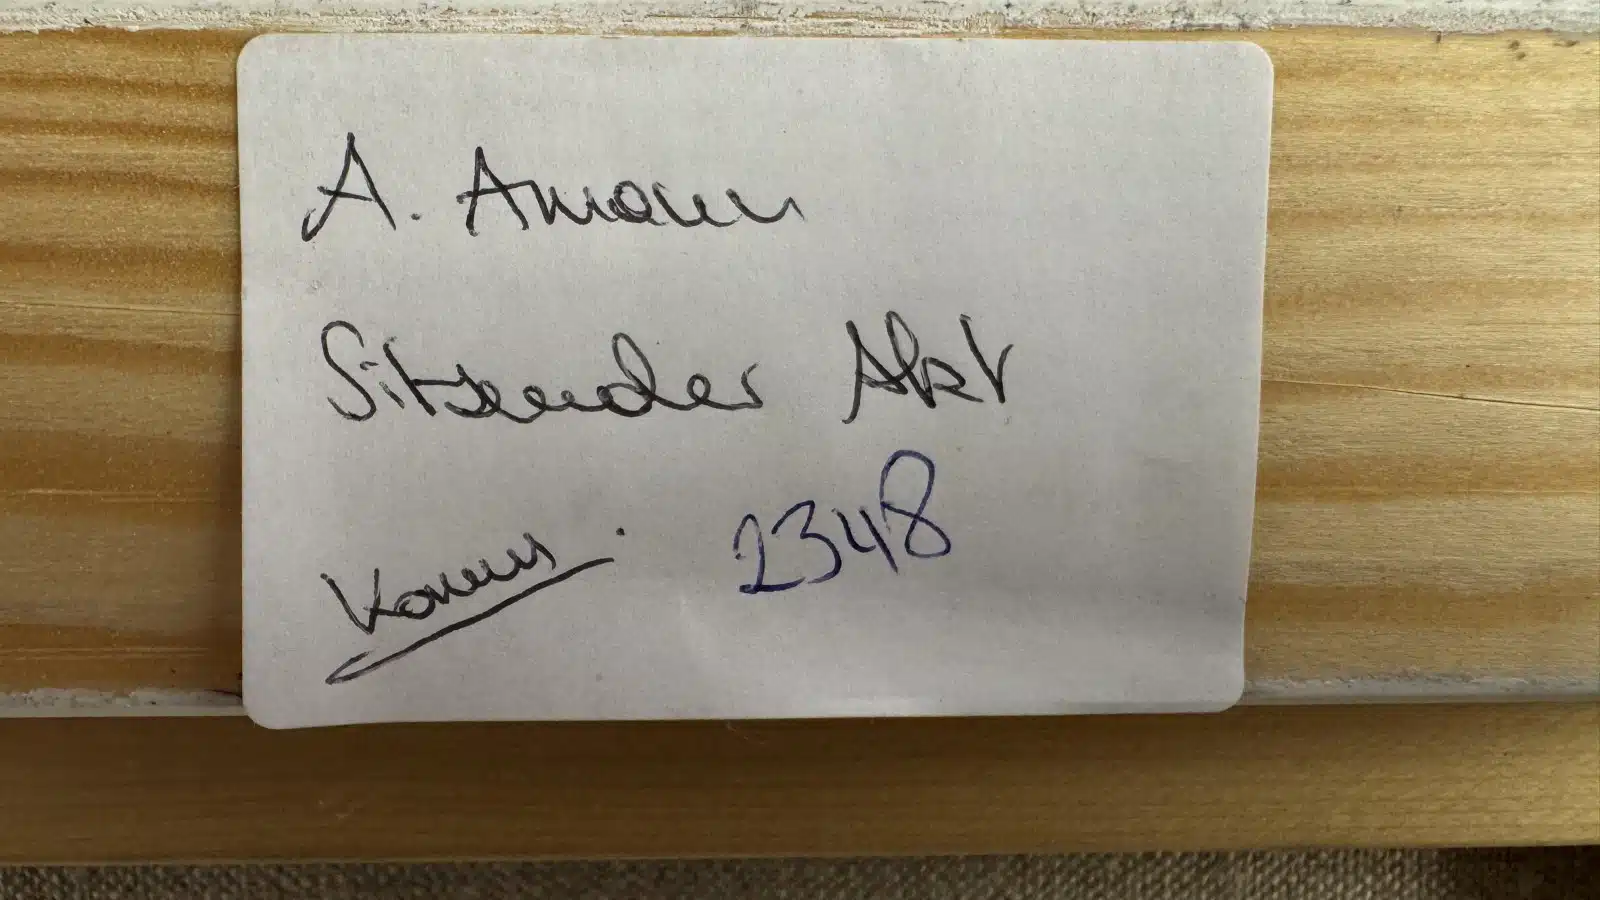 A. Amann
Sitzender Akt
Komm. 2348